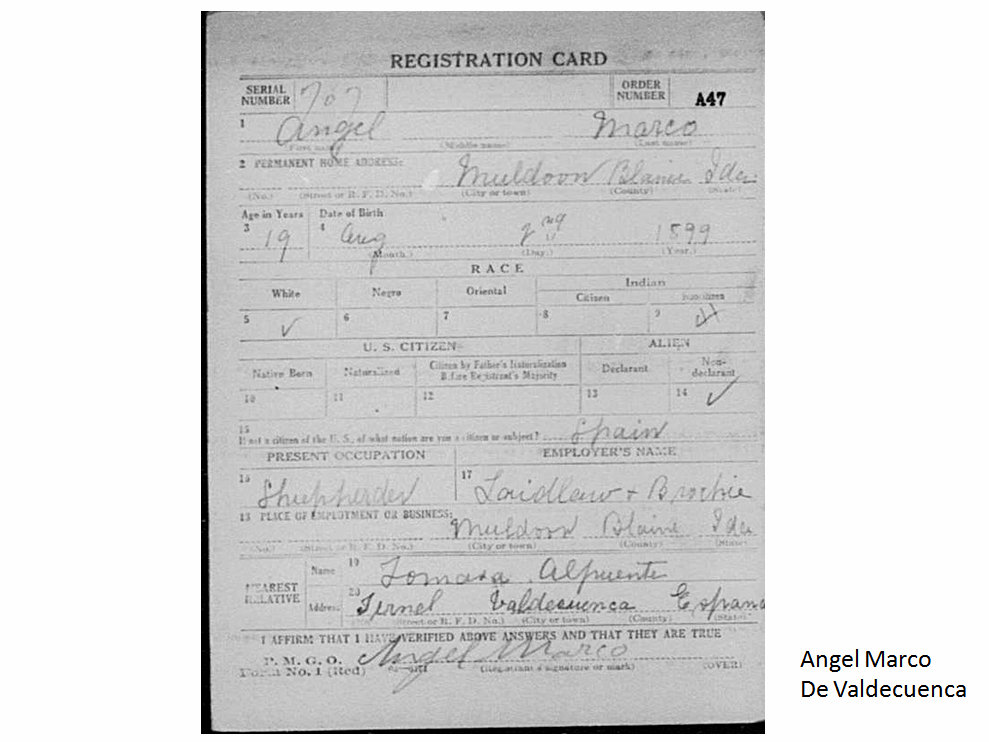 REGISTRATION CARD
SERIAL NUMBER 707 ORDER NUMBER A47
1 Angel Marco
(First name) (Middle name) (Last name)
2 PERMANENT HOME ADDRESS:
Muldoon Blaine Ida
(No.) (Street or R. F. D. No.) (City or town) (County) (State)
Age in Years Date of Birth
3 19 4 Aug 2nd 1899
(Month.) (Day.) (Year.)
RACE
White Negro Oriental Indian
Citizen Noncitizen
5 6 7 8 9
U. S. CITIZEN ALIEN
Native Born Naturalized Citizen by Father's Naturalization Before Registrant's Majority Declarant Non-declarant
10 11 12 13 14
15
If not a citizen of the U. S., of what nation are you a citizen or subject? Spain
PRESENT OCCUPATION EMPLOYER'S NAME
16 Sheepherder 17 Laidlaw + Brockie
18 PLACE OF EMPLOYMENT OR BUSINESS:
Muldoon Blaine Ida
(No.) (Street or R. F. D. No.) (City or town) (County) (State)
NEAREST RELATIVE
Name 19 Tomasa Alpuente
Address 20 Teruel Valdecuenca Espana
(Street or R. F. D. No.) (City or town) (County) (State)
I AFFIRM THAT I HAVE VERIFIED ABOVE ANSWERS AND THAT THEY ARE TRUE
P. M. G. O.
Form No. 1 (Red) Angel Marco
(Registrant's signature or mark) (OVER)
Angel Marco
De Valdecuenca